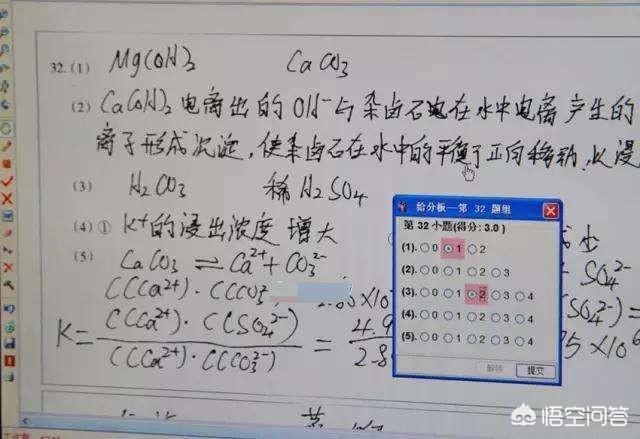 32.(1) Mg(OH)3 CaCO3
(2) Ca(OH)2电离出的OH-与杂卤石电在水中电离产生的
离子形成沉淀,使杂卤石在水中的平衡于正向移动,
(3) H2CO3 稀H2SO4
(4) ① K+的浸出浓度 增大
(5) CaCO3 ⇌ Ca2+ + CO3 2-
C(Ca2+)·C(CO3 2-
K= C(Ca2+)·C(SO4 2-) / C(Ca2+)·C(CO3 2-) = 4.9 / 2.8
SO4 2-
×10
给分板—第 32 题组
第 32 小题(得分: 3.0 )
(1). 0 1 2
(2). 0 1 2 3
(3). 0 1 2 3 4
(4). 0 1 2 3 4
(5). 0 1 2 3 4
解锁 提交
悟空问答